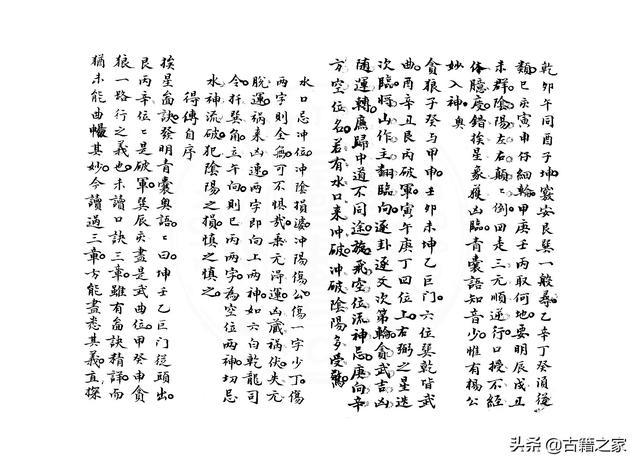 乾卯午同酉子坤處安艮巽一般尋乙辛丁癸須從
類巳亥寅申仔細輪甲庚壬丙取何地要明辰戌丑
未群陰陽左右顛顛倒田走三元順逆行口授不經
休臆度錯挨星豪獲凶臨青囊語知音少惟有楊公
妙入神奧
貪狼子癸与甲申壬卯未坤乙巨门六位巽乾皆武
曲酉辛丑艮丙破軍寅午庚丁四位上右弼之星迭
次臨將山作主翻臨向逐卦逐爻次第輪貪武吉凶
随運轉廉歸中道不同途旋飛空位流神忌庚向辛
方空位名若有水口来冲破冲破陰陽多受驚
水口忌冲位冲陰損婆冲陽傷公傷一字少丁傷
两字則全無可不惧哉乘元淂運凶藏祸伏失元
脫運祸来凶速两字即向上两神如六白乾龍司
令扦巽角立午向則巳丙两字為空位两神切忌
水神流破犯陰陽之損慎之慎之
得傳自序
挨星面訣發明青囊奥語語曰坤壬乙巨门従頭出
艮丙辛位位是破軍巽辰亥盡是武曲位甲癸申貪
狼一路行之義也未讀口訣三章雖有面訣精詳而
猶未能曲暢其妙今讀過三章方能盡悉其義直探
头条@古籍之家